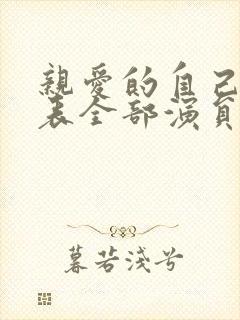 親愛的自己
表全部演員
暮若淺兮